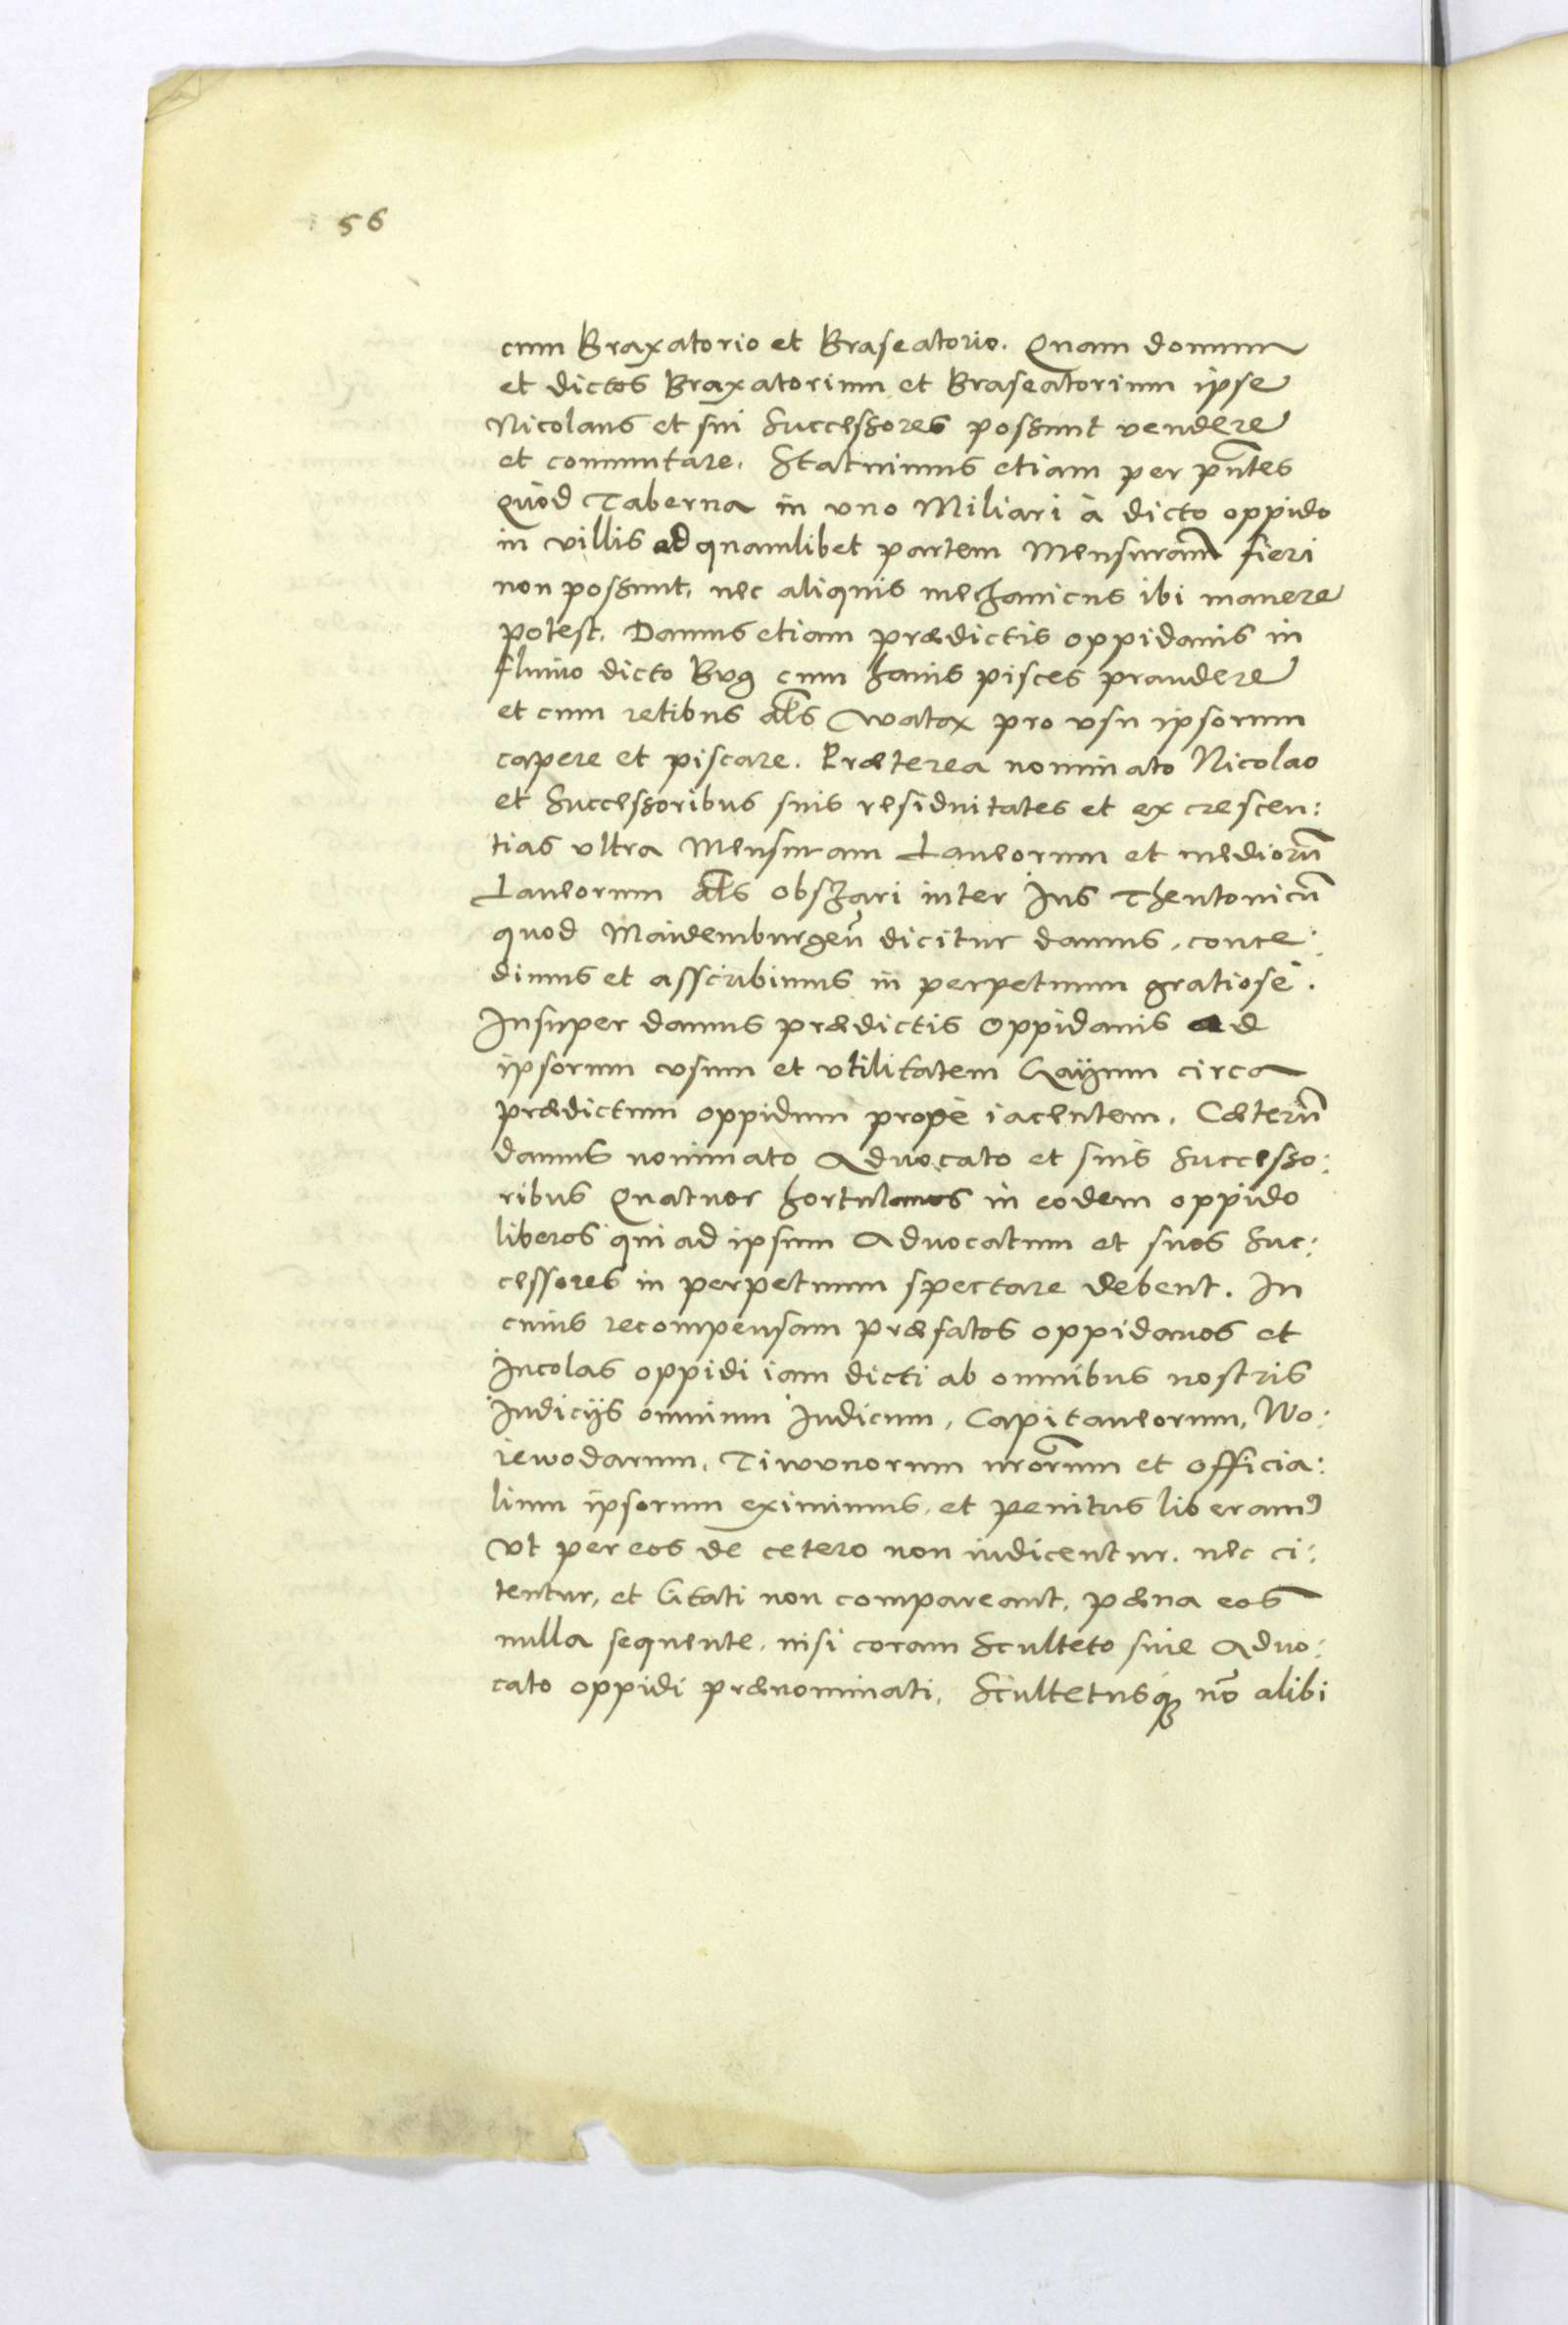 56
cum Braxatorio et Braseatorio. Quam domum
et dictos Braxatorium et Braseatorium ipse
Nicolaus et sui Successores possunt vendere
et comutare. Statuimus etiam per pñtes
quòd Taberna in vno Miliari à dicto oppido
in villis ad quamlibet partem Mensuram̃ fieri
non possunt, nec aliquis mechanicus ibi manere
potest. Damus etiam prædictis oppidanis in
fluuio dicto Bug cum hamis pisces prandere
et cum retibus al̃s watax pro vsu ipsorum
capere et piscare. Præterea nominato Nicolao
et Successoribus suis residuitates et excrescen:
tias vltra Mensuram Laneorum et mediorũ
Laneorum al̃s obszari inter Ius Theutonicũ
quod Maidemburgeñ dicitur damus, conce:
dimus et asscribimus in perpetuum gratiosè.
Insuper damus prædictis Oppidanis ad
ipsorum vsum et vtilitatem Gayum circa
prædictum oppidum propè iacentem. Cæterũ
damus nominato Aduocato et suis Successo:
ribus Quatuor hortulanos in eodem oppido
liberos qui ad ipsum Aduocatum et suos Suc:
cessores in perpetuum spectare debent. In
cuius recompensam præfatos oppidanos et
Incolas oppidi iam dicti ab omnibus nostris
Iudicijs omnium Iudicum, Capitaneorum, Wo:
iewodarum, Tiwunorum nrõrum et officia:
lium ipsorum eximimus, et penitus liberam9
vt per eos de cetero non iudicentur, nec ci:
tentur, et Citati non compareant, pæna eos
nulla sequente, nisi coram Sculteto siue Aduo:
cato oppidi prænominati, Scultetusq́ʒ nõ alibi